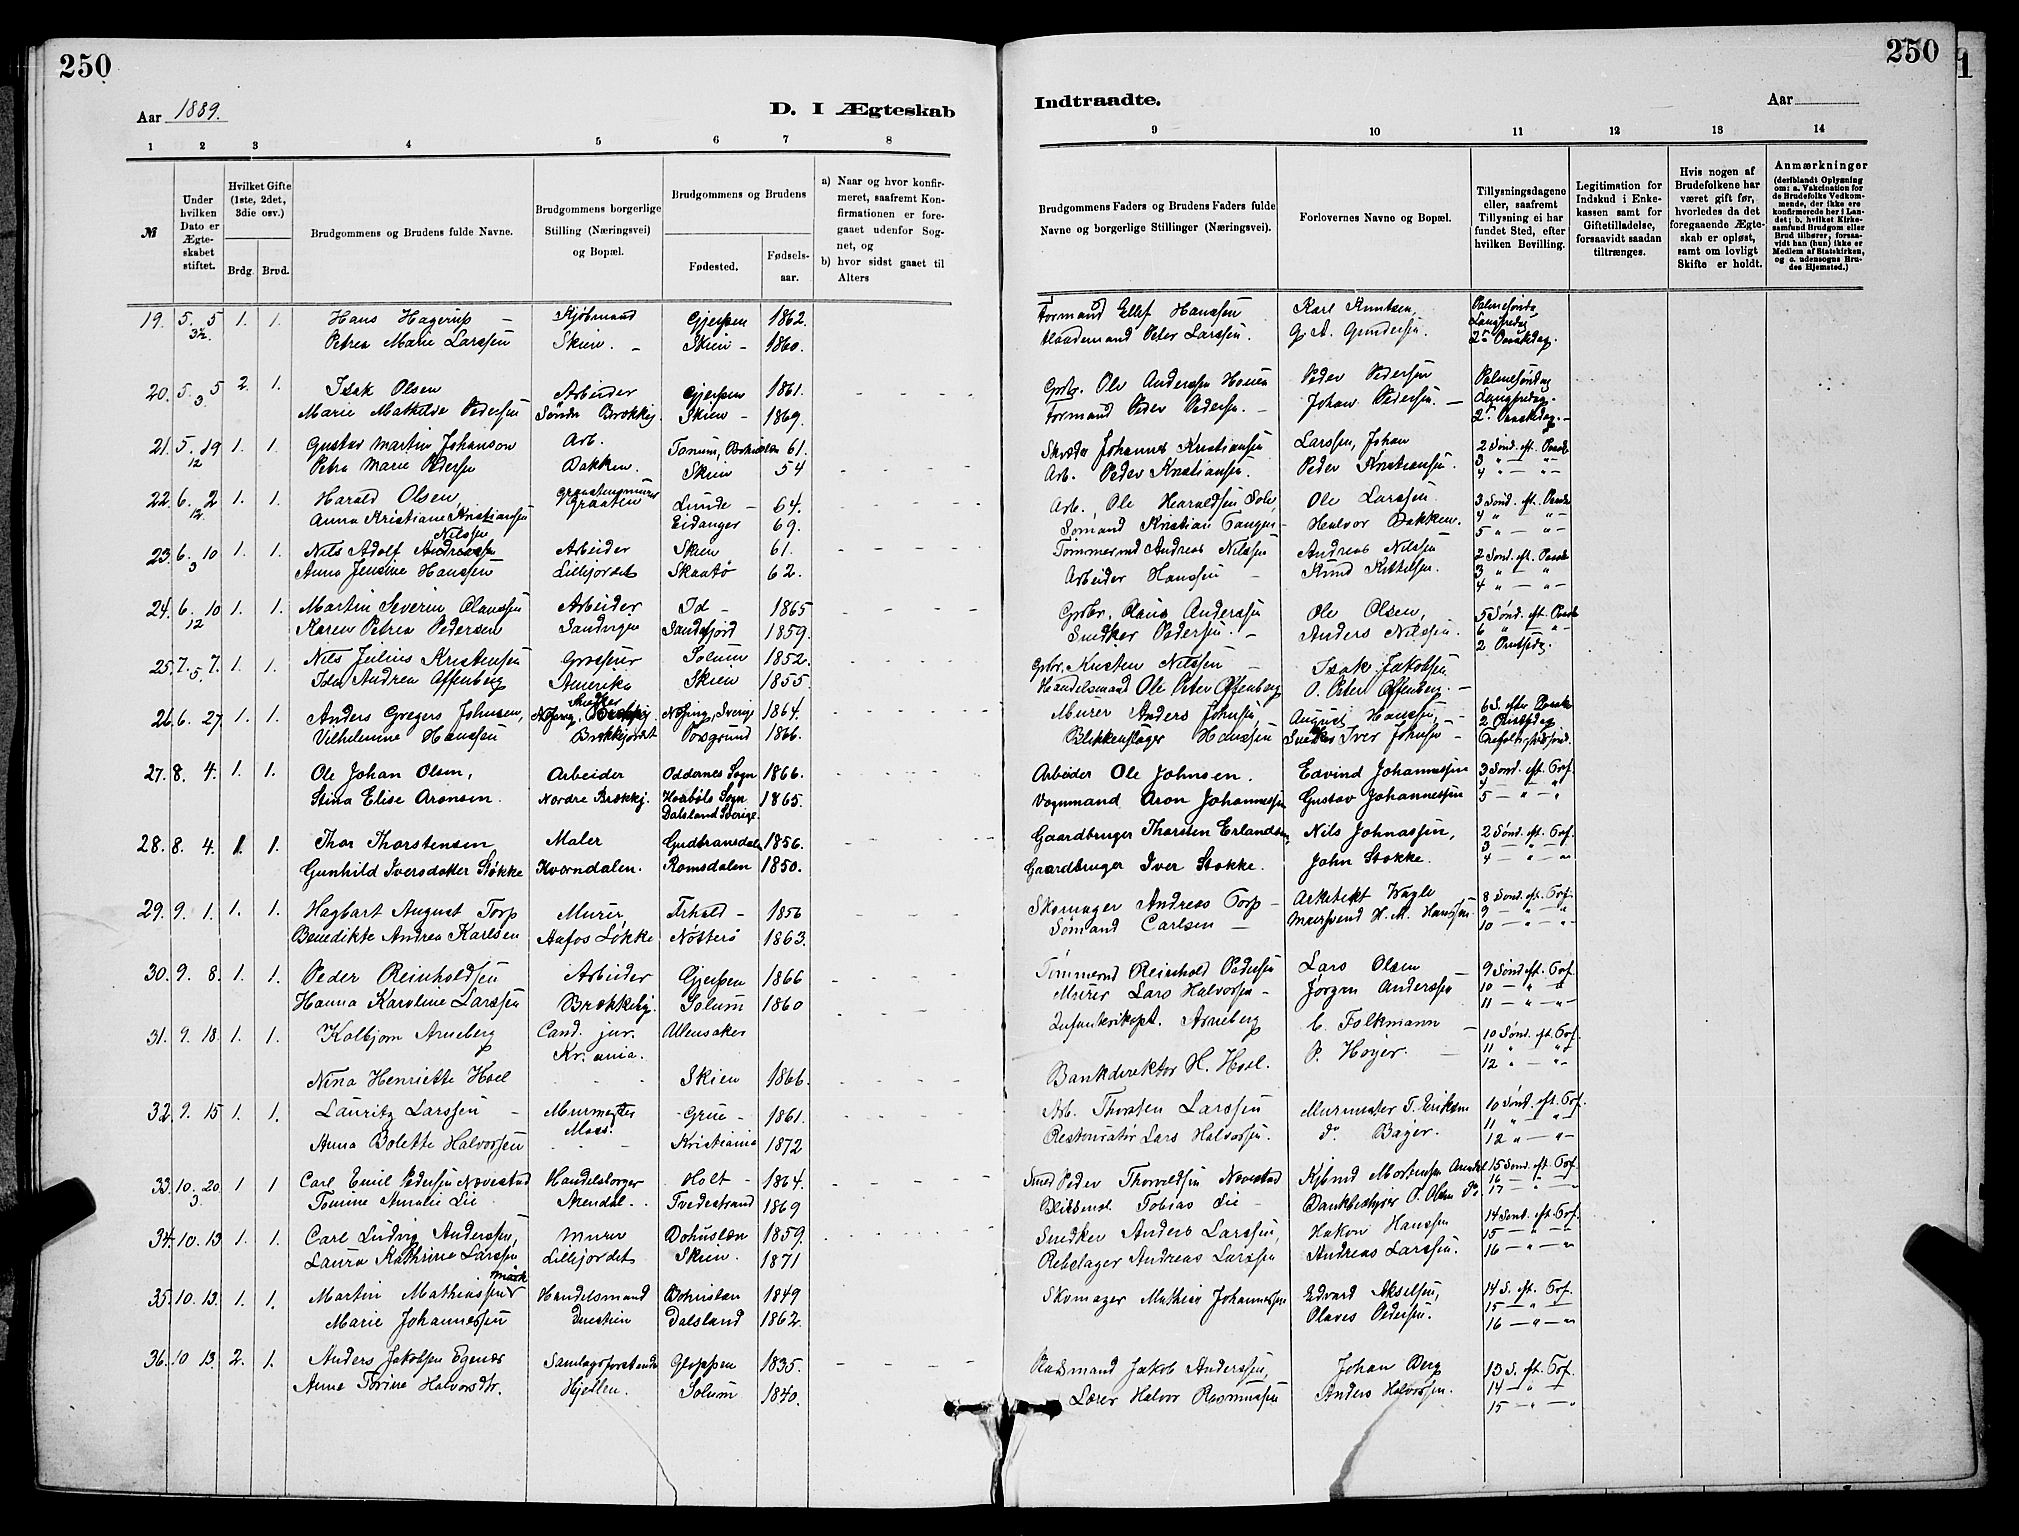 250
250
1
Aar 1889.
D. I Ægteskab
Indtraadte.
Aar
1 2 3 4 5 6 7 8
9 10 11 12 13 14
№
Under hvilken Dato er Ægteskabet stiftet.
Hvilket Gifte (1ste, 2det, 3die osv.)
Brdg. Brud.
Brudgommens og Brudens fulde Navne.
Brudgommens borgerlige Stilling (Næringsvei) og Bopæl.
Brudgommens og Brudens
Fødested.
Fødselsaar.
a) Naar og hvor konfirmeret, saafremt Konfirmationen er foregaaet udenfor Sognet, og
b) hvor sidst gaaet til Alters
Brudgommens Faders og Brudens Faders fulde Navne og borgerlige Stillinger (Næringsvei).
Forlovernes Navne og Bopæl.
Tillysningsdagene eller, saafremt Tillysning ei har fundet Sted, efter hvilken Bevilling.
Legitimation for Indskud i Enkekassen samt for Giftetilladelse, forsaavidt saadan tiltrænges.
Hvis nogen af Brudefolkene har været gift før, hvorledes da det foregaaende Ægteskab er opløst, samt om lovligt Skifte er holdt.
Anmærkninger
(deriblandt Oplysning om: a. Vakcination for de Brudefolks Vedkommende, der ikke ere konfirmerede her i Landet; b. hvilket Kirkesamfund Brudgom eller Brud tilhører, forsaavidt han (hun) ikke er Medlem af Statskirken, og c. udensogns Brudes Hjemsted.)
19. 5. 5 1. 1. Hans Hagerup Kjøbmand Gjerpen 1862. Formand Ellef Hanssen Karl Knutsen Palmesønda
Petrea Marie Larssen Skien. Skien 1860. Peter Larssen. G. A. Gundersen. Langfredag
2. Paaskdag.
20. 5. 5 2. 1. Isak Olsen Arbeider Gjerpen 1861. Gbr. Ole Anderssen Peder Pedersen Palmesøndag
3 Marie Mathilde Pedersen Søndre Brekkj. Skien 1869. Formand Peder Pedersen. Johan Pedersen. Langfredag.
2. Paaskdag.
21. 5. 19 1. 1. Gustav Martin Johanson Arb. Tanum, 61. Johannes Kristiansen Larssen, Johan 2 Sønd. eft. Paaske
12 Petra Marie Pedersen Bakken. Skien 54 Arb. Peder Kristiansen. Peder Kristiansen. 3 " — "
4 " — "
22. 6. 2 1. 1. Harald Olsen, Graaten Lunde 64. Arb., Ole Haraldsen Ole Larssen 3 Sønd. eft. Paaske
12. Anna Kristiane Kristiansen Eidanger 69. Sømand Kristian Tangen Halvor Bakken. 4 " "
Nilssen 5 " — "
23. 6. 10 1. 1. Nils Adolf Andreassen Arbeider Skien 61. Andreas Nilssen Andreas Nilssen 2 Sønd. eft. Paaske
3 Anna Jensine Hanssen Lillejordet Skaatø 62. Arbeider Hanssen Knud Kittelsen. 3 " — "
4 " — "
24. 6. 10 1. 1. Martin Severin Olaussen Arbeider Id 1865 Gbr. Olaus Anderssen Ole Olsen, 5 Sønd. eft. Paaske
12 Karen Petrea Pedersen Sandvigen Sandefjord 1859. Snedker Pedersen. Anders Nilssen. 6 " — "
2 Pintsedg.
25. 7. 7. 1. 1. Nils Julius Kristensen Solum 1852. Gbr. Kristen Nilssen Isak Jakobsen
5. Ida Andrea Affenberg Amerika Skien 1855. Handelsmand Ole Peter Affenberg O. Peter Affenberg.
26. 6. 27. 1. 1. Anders Gregers Johnsen, Snedker Sverig 1864. Murer Anders Johnsen, August Hanssen, 6 S. efter Paaske
Vilhelmine Hanssen Brekkejordet Porsgrund 1866. Blikkenslager Hanssen Snedker Iver Johnsen 2 Pintsdag
27. 8. 4. 1. 1. Ole Johan Olsen, Arbeider Oddernes Sogn 1866. Arbeider Ole Johnsen. Edvind Johannessen 3 Sønd. eft. Tref.
Stina Elise Aronsen. Nordre Brekkj. Sogn 1865. Vognmand Aron Johannessen Gustav Johannessen 4
Dalsland Sverige. 5 — " — "
28. 8. 4. 1. 1. Thor Thorstensen Maler Gudbransdalen 1856. Gaardbruger Thorsten Erlandsen, Nils Johnassen, 2 Sønd. eft. Tref.
Gunhild Iversdatter Støkke Kverndalen. Romsdalen 1850. Gaardbruger Iver Stokke. John Stokke. 3 — " — "
4 — " — "
29. 9. 1. 1. 1. Hagbart August Torp Murer, 1856 Skomager Andreas Torp Arkitekt Wagle 8 Sønd. eft. Tref.
Benedikte Andrea Karlsen Aafos Løkke Nøtterø 1863. Sømand Carlsen Murersvend H. M. Hanssen. 9 — " "
10 — " — "
30. 9. 8. 1. 1. Peder Reinholdsen Arbeider Gjerpen 1866 Reinhold Pedersen Lars Olsen 9 Sønd eft. Tref.
Hanna Karoline Larssen Brekkebg. Solum 1860 Murer Lars Halvorsen Jørgen Anderssen 10 — " "
11 — " — "
31. 9. 18. 1. 1. Kolbjørn Arneberg Cand. jur. Ullensaker Infantrikapt. Arneberg C. Folkmann 10 Sønd. eft. Tref.
Kr.ania. P. Høyer. 11 " "
Nina Henriette Hoel Skien 1866. Bankdirektør H. Hoel. 12 " — "
32. 9. 15 1. 1. Lauritz Larssen Murmester Grue 1861. Arb. Thorsten Larssen Murmester T. Eriksen 10 Sønd. eft. Tref.
Moss. 11 " — "
Anna Bolette Halvorsen Kristiania 1872 Restauratør Lars Halvorsen. do. Bager. 12 " — "
33. 10. 20. 1 1 Carl Emil Pedersen Nævestad Handelsborger Holt 1864. Smed Peder Thorvaldsen Nævestad Kjbmd Mortensen Arendal 15 Sønd. eft. Tref.
3 Tomine Amalie Lie Arendal. Tvedestrand 1869 Tobias Lie Bankbestyrer P. Olsen do 16 — " —
17 — " — "
34. 10. 13 1. 1. Carl Ludvig Anderssen, Murer Bohuslæn 1859. Snedker Anders Larssen, Hakon Hanssen 14 Sønd. eft. Tref.
Laura Kathrine Larssen Lillejordet Skien. 1871 Rebslager Andreas Larssen Andreas Larssen. 15 — " — "
16 — " — "
Mørk
35. 10. 13. 1. 1. Martin Mathiassen Handelsmand Bohuslæn 1849 Skomager Mathias Johannessen Edvard Akselsen, 14 S. eft. Tref.
Marie Johannessen Duestien Dalsland 1862. Olaves Pedersen. 15 — " —
16 — " — "
36. 10 13 2. 1. Anders Jakobsen Egenæs Samlagsforstander Gloppen 1835. Jakob Anderssen, Johan Berg 13 S. eft. Tref.
Anne Torine Halvorsdtr. Hjellen. Solum 1840. Lærer Halvor Rasmussen Anders Halvorsen. 14 — " —
15 — " — "